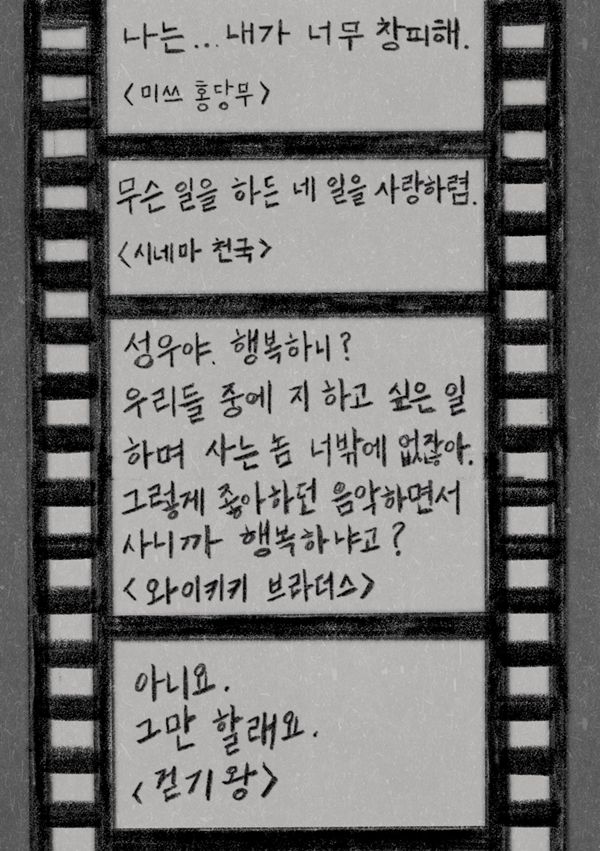 나는... 내가 너무 창피해.
<미쓰 홍당무>
무슨 일을 하든 네 일을 사랑하렴.
<시네마 천국>
성우야. 행복하니?
우리들 중에 지 하고 싶은 일
하며 사는 놈 너밖에 없잖아.
그렇게 좋아하던 음악하면서
사니까 행복하냐고?
<와이키키 브라더스>
아니요.
그만 할래요.
<걷기왕>